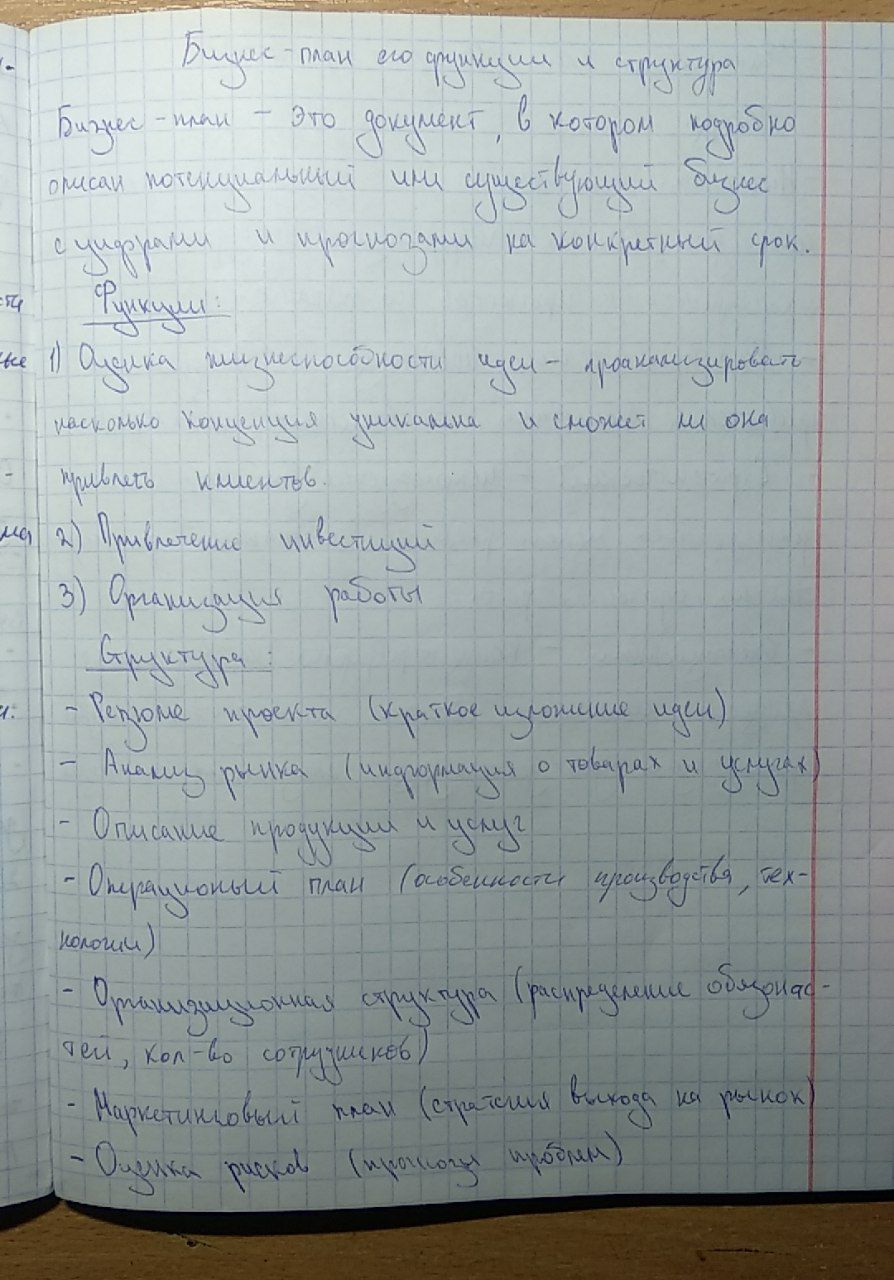 Бизнес-план его функции и структура
Бизнес-план – это документ, в котором подробно
описан потенциальный или существующий бизнес
с цифрами и прогнозами на конкретный срок.
Функции:
1) Оценка жизнеспособности идеи – проанализировать
насколько концепция уникальна и сможет ли она
привлечь клиентов.
2) Привлечение инвестиций
3) Организация работы
Структура:
- Резюме проекта (краткое изложение идеи)
- Анализ рынка (информация о товарах и услугах)
- Описание продукции и услуг
- Операционый план (особенности производства, тех-
нологии)
- Организационная структура (распределение обязонас-
тей, кол-во сотрудников)
- Маркетинговый план (стратегия выхода на рынок)
- Оценка рисков (прогноз проблем)